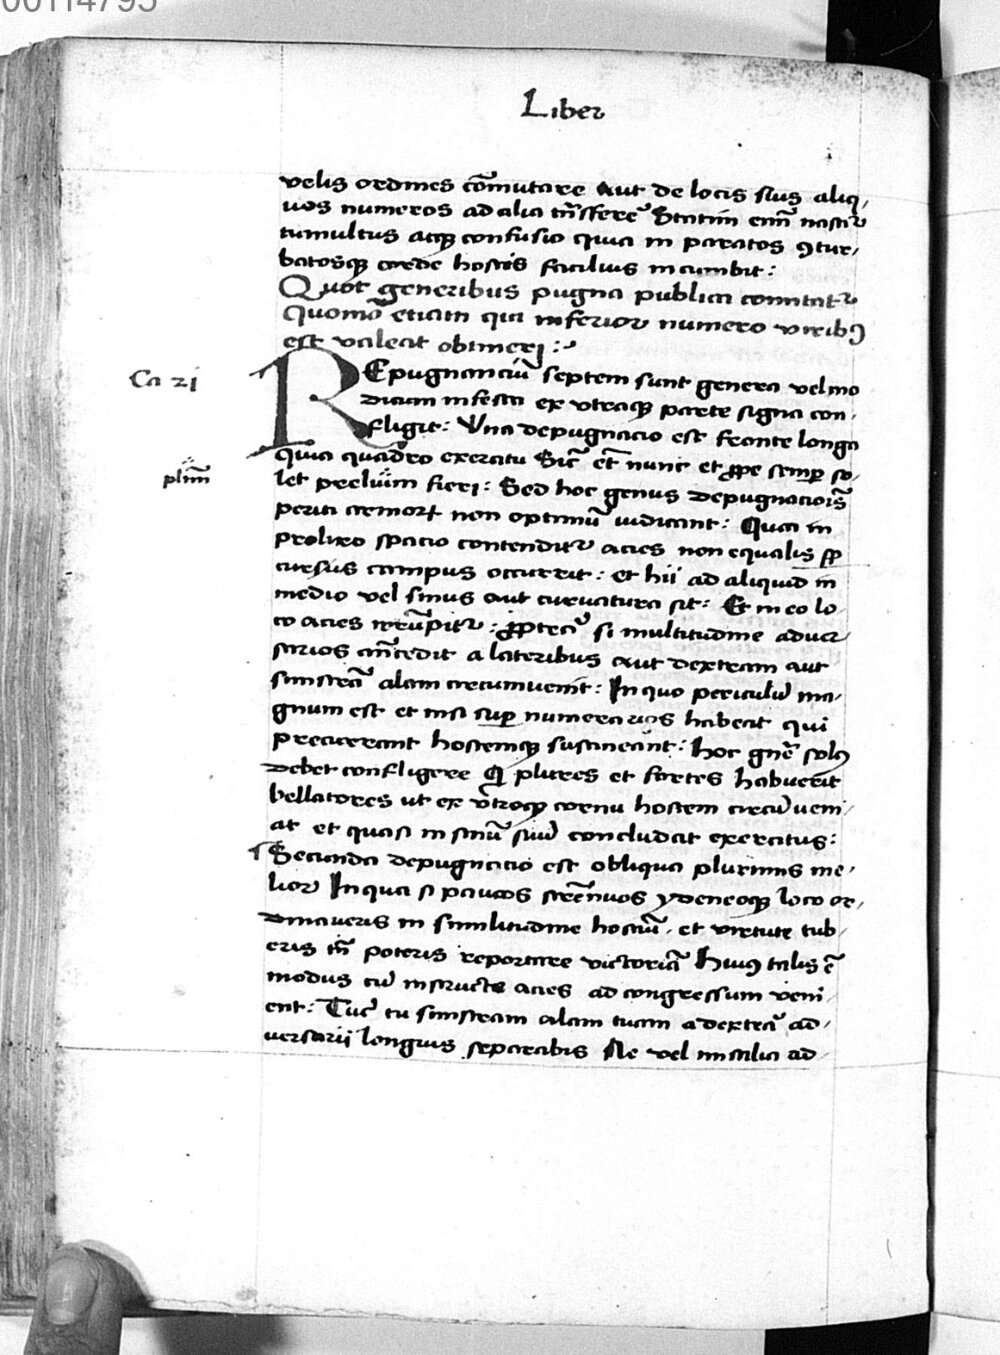 00114795
Liber
velis ordines cōmutare Aut de locis suis aliq,
uos numeros ad alia trāsferre Statim enim nascit᷑
tumultus atqꝫ confusio quia in paratos ꝯtur,
batosqꝫ acrede hostis facilius incumbit :
Quot generibus pugna publica comitat᷑
Quomō etiam qui inferior numero virib9
est valeat obtineri :
Ca 21
REpugnanciū septem sunt genera vel mo
dicam infesta ex vtraqꝫ parte signa con,
fligit : Vna depugnacio est fronte longa
quia quadro exercitu Sic̄ et̄ nunc et ꝓpe semꝑ so,
plīm
let preluim fieri : Sed hoc genus depugnaciōis
periti armorꝝ non optimū iudicant : Quia in
prolixo spacio contendit᷑ acies non equalis ꝑ
cursus campus occurrit : et hii ad aliquid in
medio vel sinus aut curuatura sit : Et in eo lo,
co acies irrūpit᷑ : ꝓpterea si multitudine aduer
sarios ān̄cedit a lateribus aut dexteram aut
sinistrā alam circumuenit : In quo periculū ma,
gnum est et nisi suꝑ numerarios habeat qui
precurrant hostemqꝫ sustineant : hoc gn̄e sol9
debet confligere ꝗ plures et fortes habuerit
bellatores ut ex vtroqꝫ cornu hostem circū ueni,
at et quasi in sinū suū concludat exercitus :
Secunda depugnacio est obliqua plurimis me,
lior In qua si paucos strēnuos ydoneosqꝫ loco or,
dinaueris in similitudine hostiū, et virtute turb,
eris tn̄ poteris reportare victoriā Hui9 talis ē
modus cū instructe acies ad congressum veni,
ent : Tūc tu sinistram alam tuam a dextera ad,
versarii longius separabis Ne vel missilia ad,